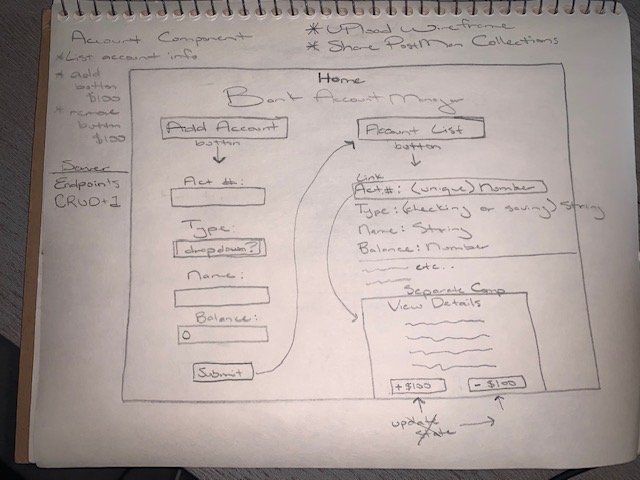 Account Component
* List account info
* add
button
$100
* remove
button
$100
Server
Endpoints
CRUD+1
* Upload Wireframe
* Share PostMan Collections
Home
Bank Account Manager
Add Account
button
Act #:
Type:
dropdown?
Name:
Balance:
0
Submit
Account List
button
Link
Act.#: (unique) Number
Type: (checking or saving) String
Name: String
Balance: Number
etc..
Separate Comp
View Details
+$100
- $100
update
state